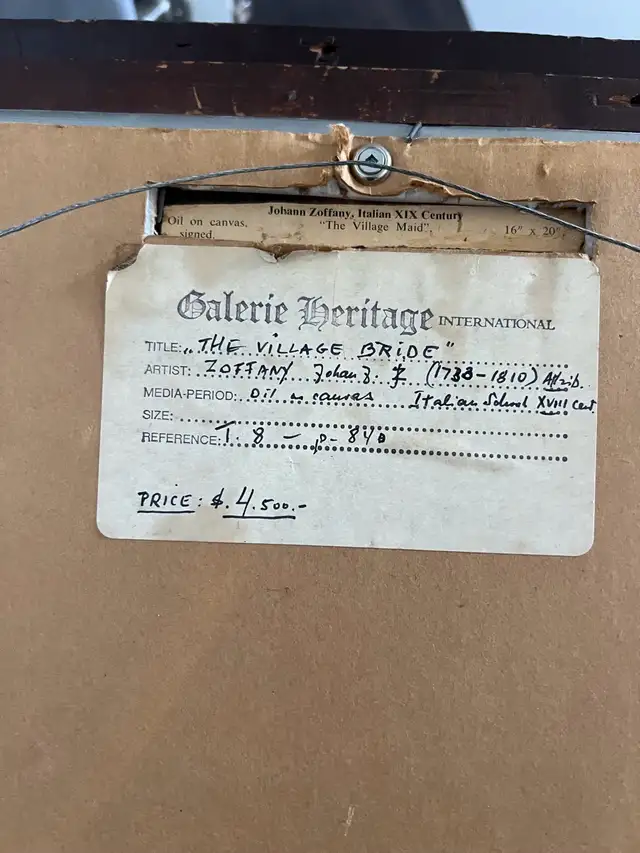 Johann Zoffany, Italian XIX Century
Oil on canvas. "The Village Maid". 16" x 20"
signed.
Galerie Heritage INTERNATIONAL
TITLE: "THE VILLAGE BRIDE"
ARTIST: ZOFFANY Johan J. (1733-1810) Attrib.
MEDIA-PERIOD: Oil on canvas Italian School XVIII Cent.
SIZE:
REFERENCE: T. 8 - p- 840
PRICE: $. 4.500.-